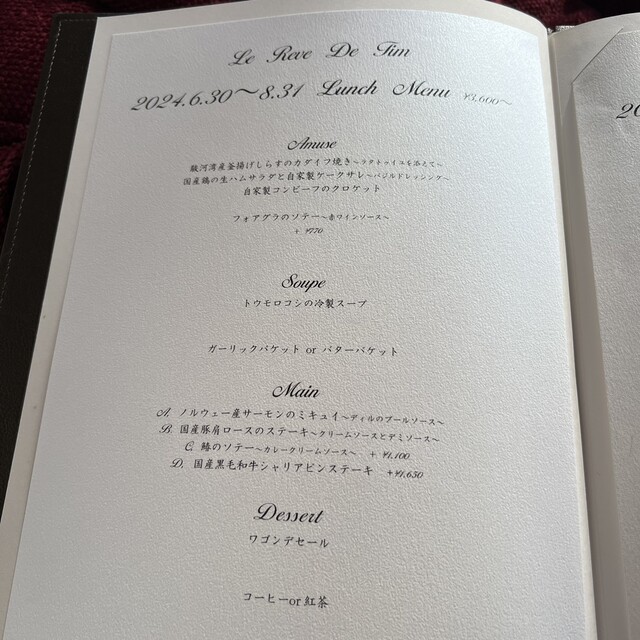 Le Reve De Tim
2024.6.30〜8.31 Lunch Menu ¥3,600〜
Amuse
駿河湾産釜揚げしらすのカダイフ焼き〜ラタトゥイユを添えて〜
国産鶏の生ハムサラダと自家製ケークサレ〜バジルドレッシング〜
自家製コンビーフのクロケット
フォアグラのソテー〜赤ワインソース〜
+ ¥770
Soupe
トウモロコシの冷製スープ
ガーリックバケット or バターバケット
Main
A. ノルウェー産サーモンのミキュイ〜ディルのブールソース〜
B. 国産豚肩ロースのステーキ〜クリームソースとデミソース〜
C. 鰆のソテー〜カレークリームソース〜 + ¥1,100
D. 国産黒毛和牛シャリアピンステーキ +¥1,650
Dessert
ワゴンデセール
コーヒーor 紅茶
20